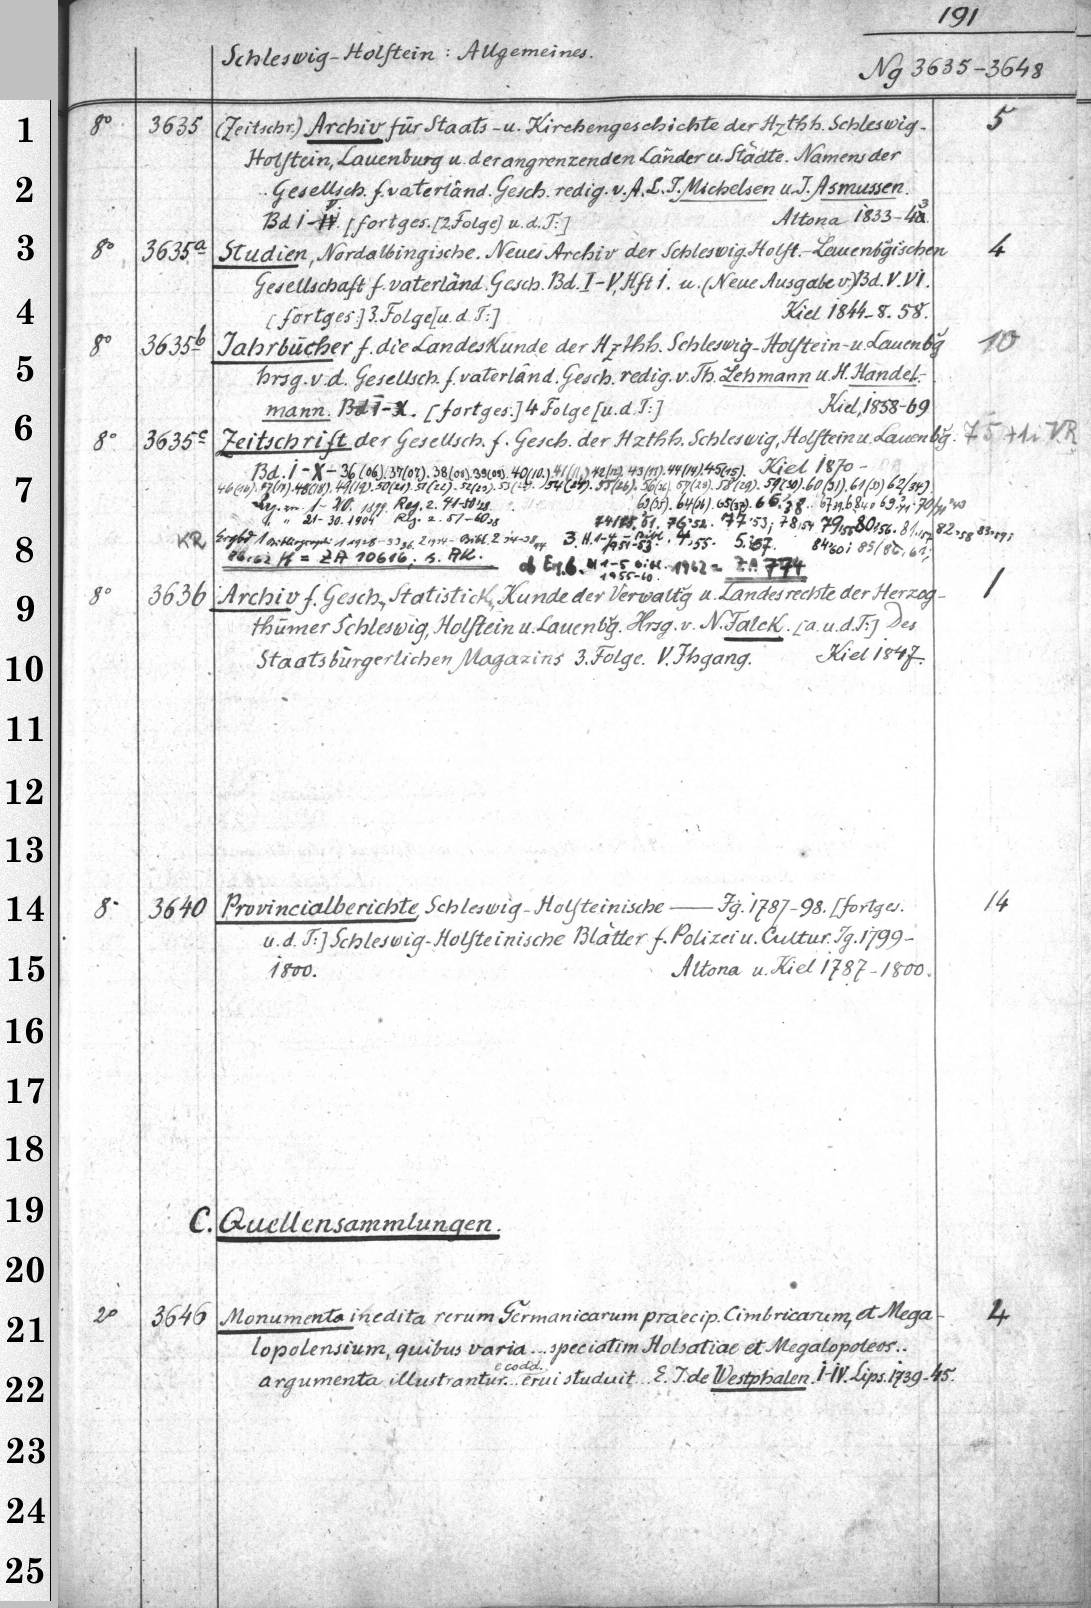 191
Schleswig-Holstein: Allgemeines.
Ng 3635-3648
1
8° 3635 (Zeitschr.) Archiv für Staats- u. Kirchengeschichte der Hzthh. Schleswig- 5
Holstein, Lauenburg u. der angrenzenden Länder u. Städte. Namens der
2
Gesellsch. f. vaterländ. Gesch. redig. v. A. L. J. Michelsen u. J. Asmussen.
Bd I-IV. [fortges. [2 Folge] u. d. T:] Altona 1833-43.
3
8° 3635a Studien, Nordalbingische. Neues Archiv der Schleswig Holst.-Lauenbgischen 4
Gesellschaft f. vaterländ. Gesch. Bd. I-V, Hft 1. u. (Neue Ausgabe v.) Bd. V. VI.
4
[fortges:] 3. Folge [u. d. T:] Kiel 1844-8. 58.
8° 3635b Jahrbücher f. die Landeskunde der Hzthh. Schleswig-Holstein- u. Lauenbg 10
5
hrsg. v. d. Gesellsch. f. vaterländ. Gesch. redig. v. Th. Lehmann u. H. Handel-
mann. Bd I-X. [fortges.] 4 Folge [u. d. T:] Kiel, 1858-69
6
8° 3635c Zeitschrift der Gesellsch. f. Gesch. der Hzthh. Schleswig, Holstein u. Lauenbg. 75 + 1 VR
Bd. I-X-36(06).37(07).38(08).39(09).40(10.).41(11.)42(12).43(13).44(14).45(15). Kiel 1870-
7
46(16).47(17).48(18).49(19).50(21).51(22).52(23).53(24).54(24).55(26).56(26).57(29).58(29).59(30).60(31).61(33)62(34).
1-20. 1899. Reg. z. 41-50 63(35).64(36).65(37).66.38
21-30. 1904 Reg. z. 51-60 74/75,51. 76,52. 77,53; 78,54 79,55 80,56. 81,57 82,58 83,59;
8
KR 4,55. 5,57. 84,60; 85/86,61;
K = ZA 10616; s. AK. 1962 = ZA 774
9
8° 3636 Archiv f. Gesch., Statistick, Kunde der Verwaltg u. Landesrechte der Herzog- 1
thümer Schleswig, Holstein u. Lauenbg. Hrsg. v. N. Falck. [a. u. d. T:] Des
10
Staatsbürgerlichen Magazins 3. Folge. V. Jhgang. Kiel 1847.
11
12
13
14
8° 3640 Provincialberichte, Schleswig-Holsteinische — Jg. 1787-98. [fortges. 14
u. d. T:] Schleswig-Holsteinische Blätter f. Polizei u. Cultur. Jg. 1799-
15
1800. Altona u. Kiel 1787-1800.
16
17
18
19
C. Quellensammlungen.
20
21
2° 3646 Monumenta inedita rerum Germanicarum praecip. Cimbricarum, et Mega- 4
lopolensium, quibus varia... speciatim Holsatiae et Megalopoleos..
22
argumenta illustrantur... e codd. erui studuit... E. J. de Westphalen. I-IV. Lips. 1739-45.
23
24
25